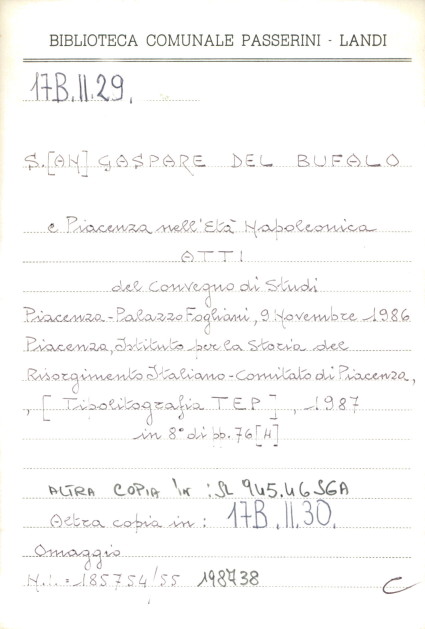 BIBLIOTECA COMUNALE PASSERINI - LANDI
17B.II.29.
S.[AN] GASPARE DEL BUFALO
e Piacenza nell'Età Napoleonica
ATTI
del Convegno di Studi
Piacenza-Palazzo Fogliani, 9 Novembre 1986
Piacenza, Istituto per la Storia del
Risorgimento Italiano-Comitato di Piacenza,
, [Tipolitografia TEP], 1987
in 8° di pp. 76[4]
ALTRA COPIA in : SL 945.46 SGA
Altra copia in : 17B.II.30.
Omaggio
N.i. = 185754/55 198738
C